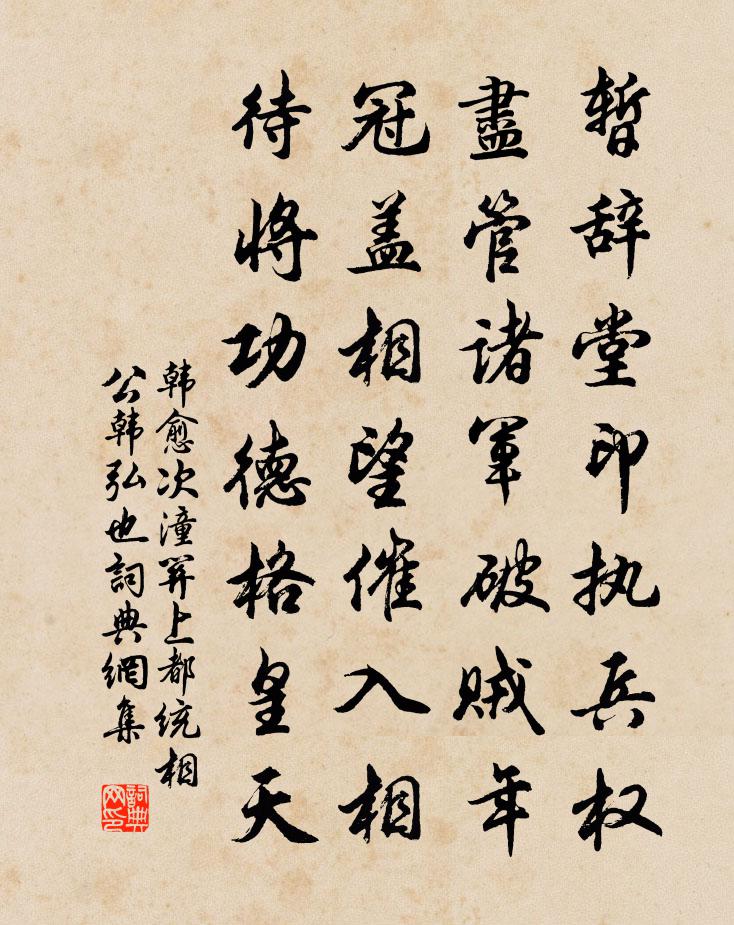 暂辞堂印执兵权
盡管诸军破贼年
冠盖相望催入相
待将功德格皇天
韩愈次潼关上都统相
公韩弘也詞典網集
詞典网印